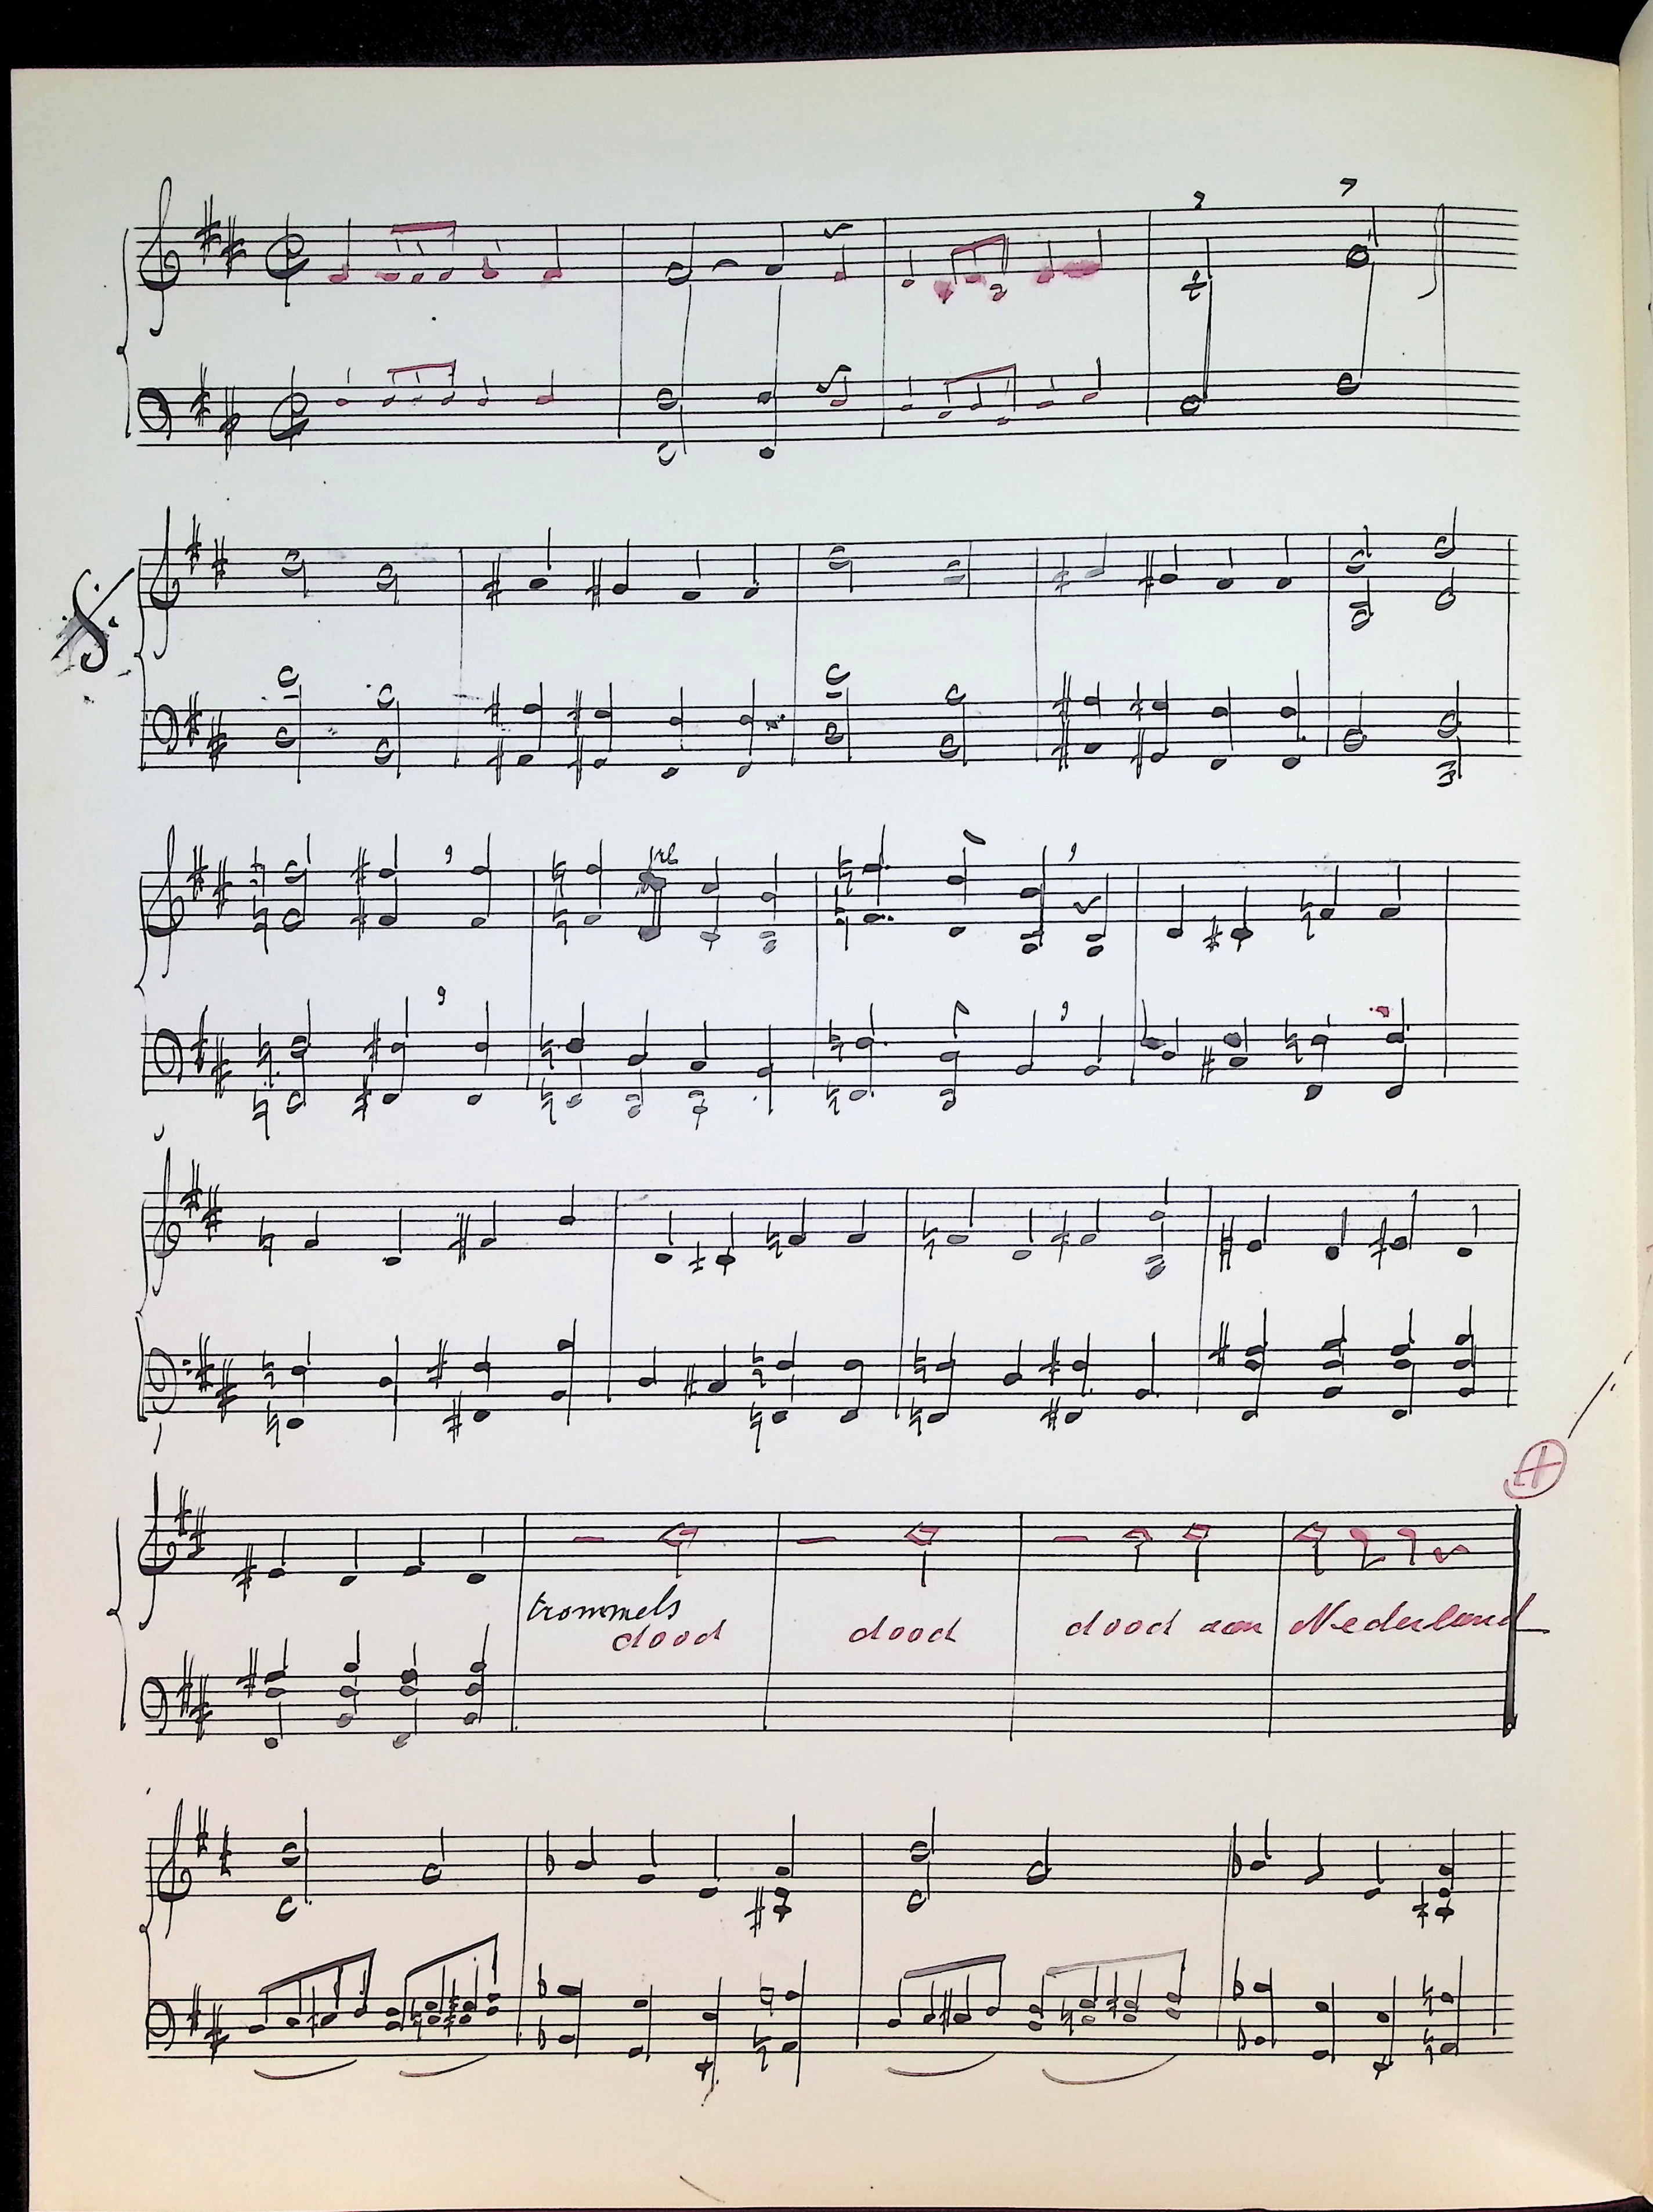 trommels
dood dood dood aan Nederland